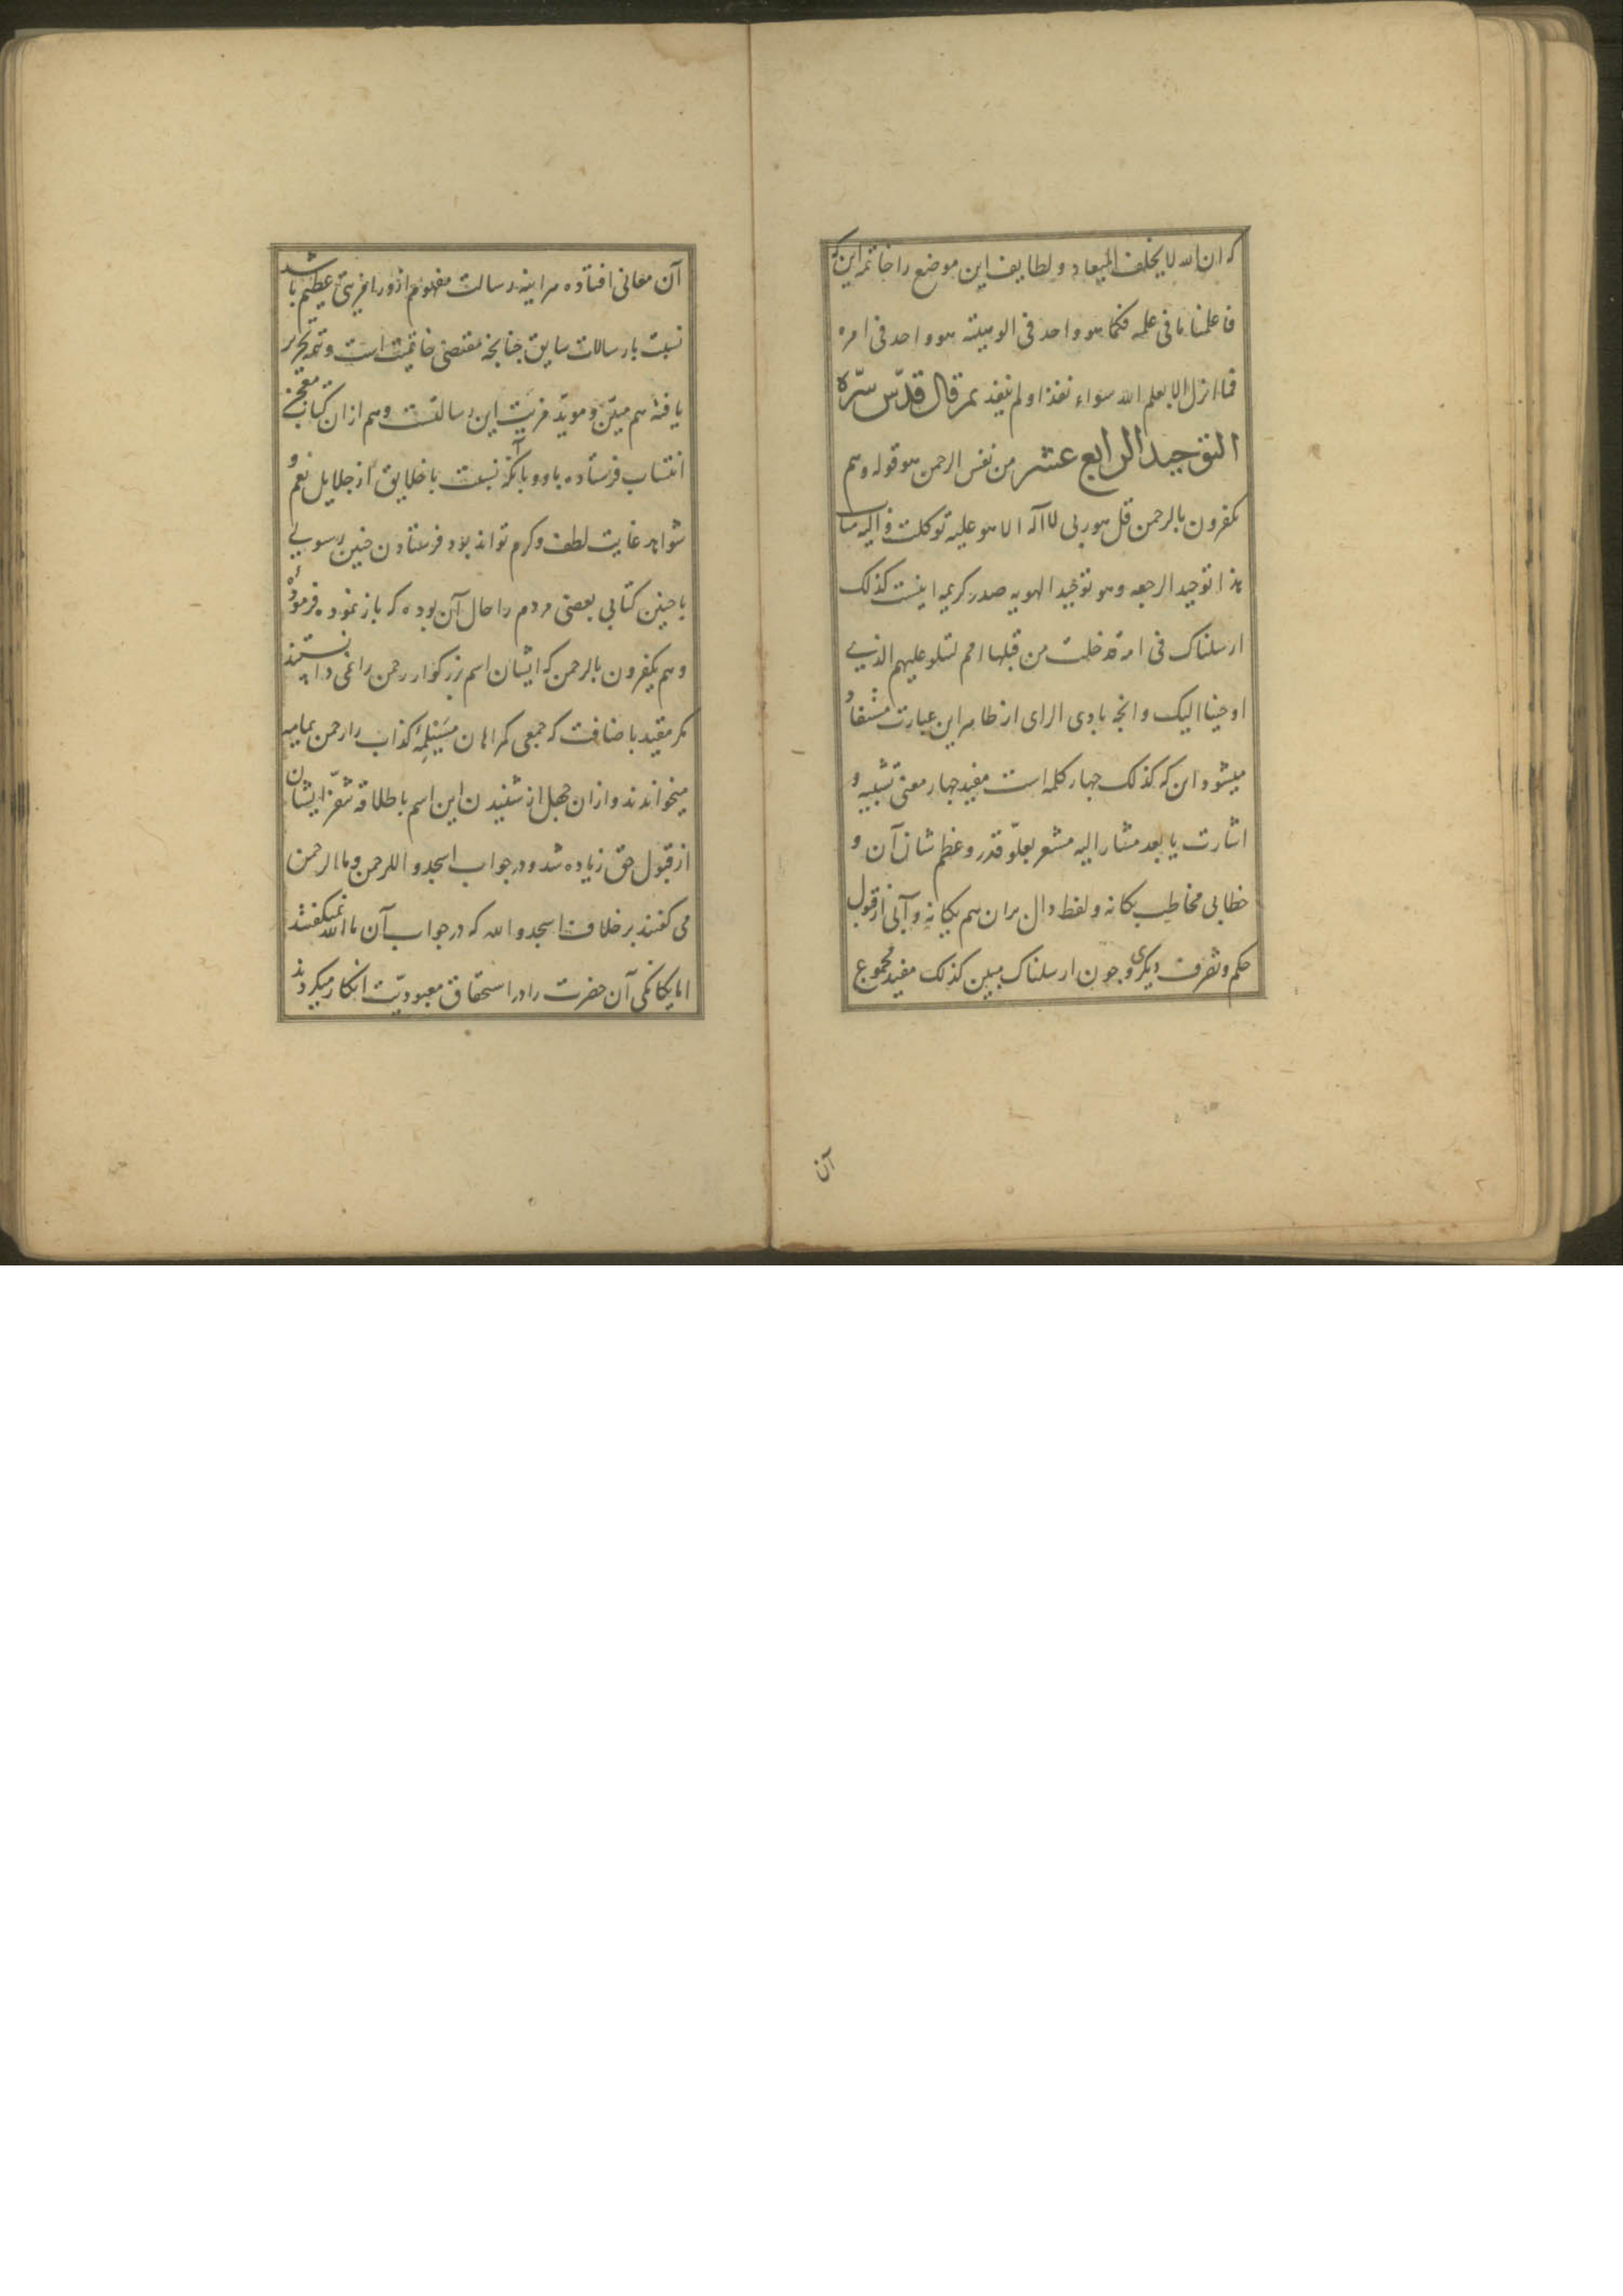 که ان الله لا یخلف المیعاد و لطایف این موضع را خاتمه این که
فاعلمنا ما فی علمه فکما هو واحد فی الوهیته هو واحد فی امره
فما انزل الا بعلم الله سواء نفذ او لم ینفذ ثم قال قدّس سرّه
التوحید الرابع عشر من نفس الرحمن هو قوله و هم
یکفرون بالرحمن قل هو ربی لا اله الا هو علیه توکلت و الیه متاب
هذا توحید الرجعه و هو توحید الهویه صدر کریمه اینست کذلک
ارسلناک فی امة قد خلت من قبلها امم لتتلو علیهم الذی
اوحینا الیک و انچه بادی الرای از ظاهر این عبارت مستفاد
میشود ان که کذلک چهار کلمه است مفید چهار معنی تشبیه و
اشارت با بعد مشار الیه مشعر بعلوّ قدر و عظم شان آن و
خطابی مخاطب یکانه و لفظ دال بران هم یکانه و آبی از قبول
حکم و تصرف دیکری و چون ارسلناک مبین کذلک مفید مجموع
آن
آن معانی افتاده هر اینه رسالت مفهوم ازو را مزیتی عظیم باشد
نسبت با رسالات سابق چنانچه مقتضی خاتمیت است و تتمه تحریر
یافته هم مبیّن و مویّد مزیت این رسالتست و هم از ان کتاب معجز
انتساب فرستاده باو و با آنکه نسبت با خلایق از جلایل نعم و
شواهد غایت لطف و کرم تواند بود فرستادن چنین رسولی
با چنین کتابی بعضی مردم را حال آن بوده که باز نموده فرموده
و هم یکفرون بالرحمن که ایشان اسم بزرکوار رحمن را نمی دانستند
مکر مقید باضافت که جمعی کمراهان مسیلمهٔ کذاب را رحمن یمامه
میخواندند و از ان جهل از شنیدن این اسم باطلاقه تنفّر ایشان
از قبول حق زیاده شد و در جواب اسجدوا للرحمن و ما الرحمن
می کفتند بر خلاف اسجدوا لله که در جواب آن ما الله نمیکفتند
اما یکانکی آن حضرت را در استحقاق معبودیّت انکار میکردند